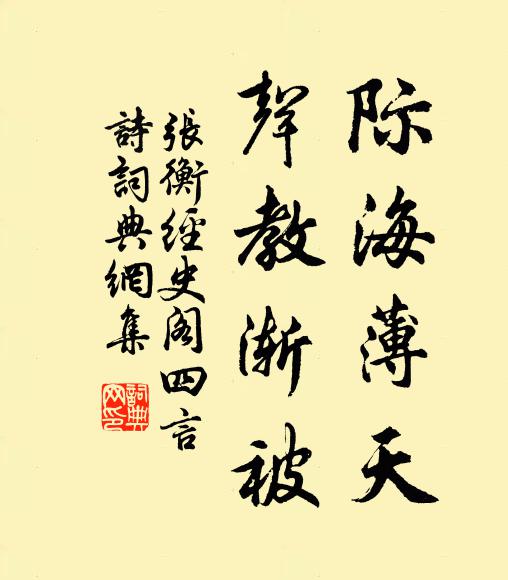 际海薄天
聲教渐被
張衡經史阁四言
詩詞典網集
詞典
网印